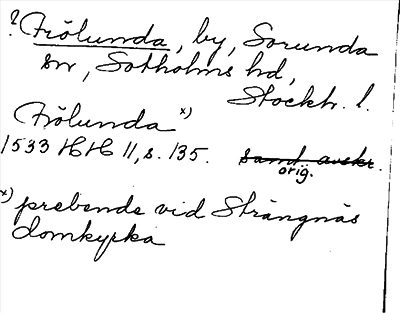 ? Frölunda, by, Sorunda
sn, Sotholms hd,
Stockh. l.
Frölunda x)
1533 HH 11, s. 135. samt. avskr.
orig.
x) prebende vid Strängnäs
domkyrka